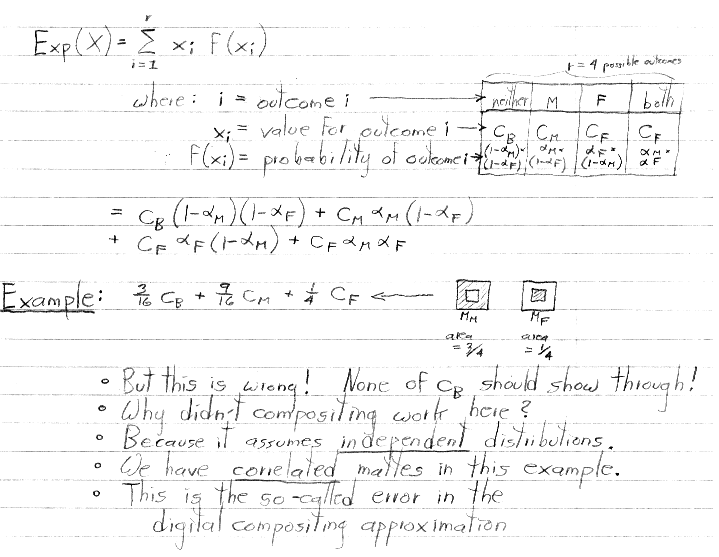 r
Exp(X) = Σ xᵢ F(xᵢ)
i=1
r = 4 possible outcomes
where: i = outcome i → neither M F both
xᵢ = value for outcome i → C_B C_M C_F C_F
F(xᵢ) = probability of outcome i → (1-α_M)* (1-α_F) α_M* (1-α_F) α_F* (1-α_M) α_M* α_F
= C_B (1-α_M)(1-α_F) + C_M α_M (1-α_F)
+ C_F α_F (1-α_M) + C_F α_M α_F
Example: 3/16 C_B + 9/16 C_M + 1/4 C_F ←
M_M M_F
area = 3/4 area = 1/4
• But this is wrong! None of C_B should show through!
• Why didn't compositing work here?
• Because it assumes independent distributions.
• We have correlated mattes in this example.
• This is the so-called error in the
digital compositing approximation